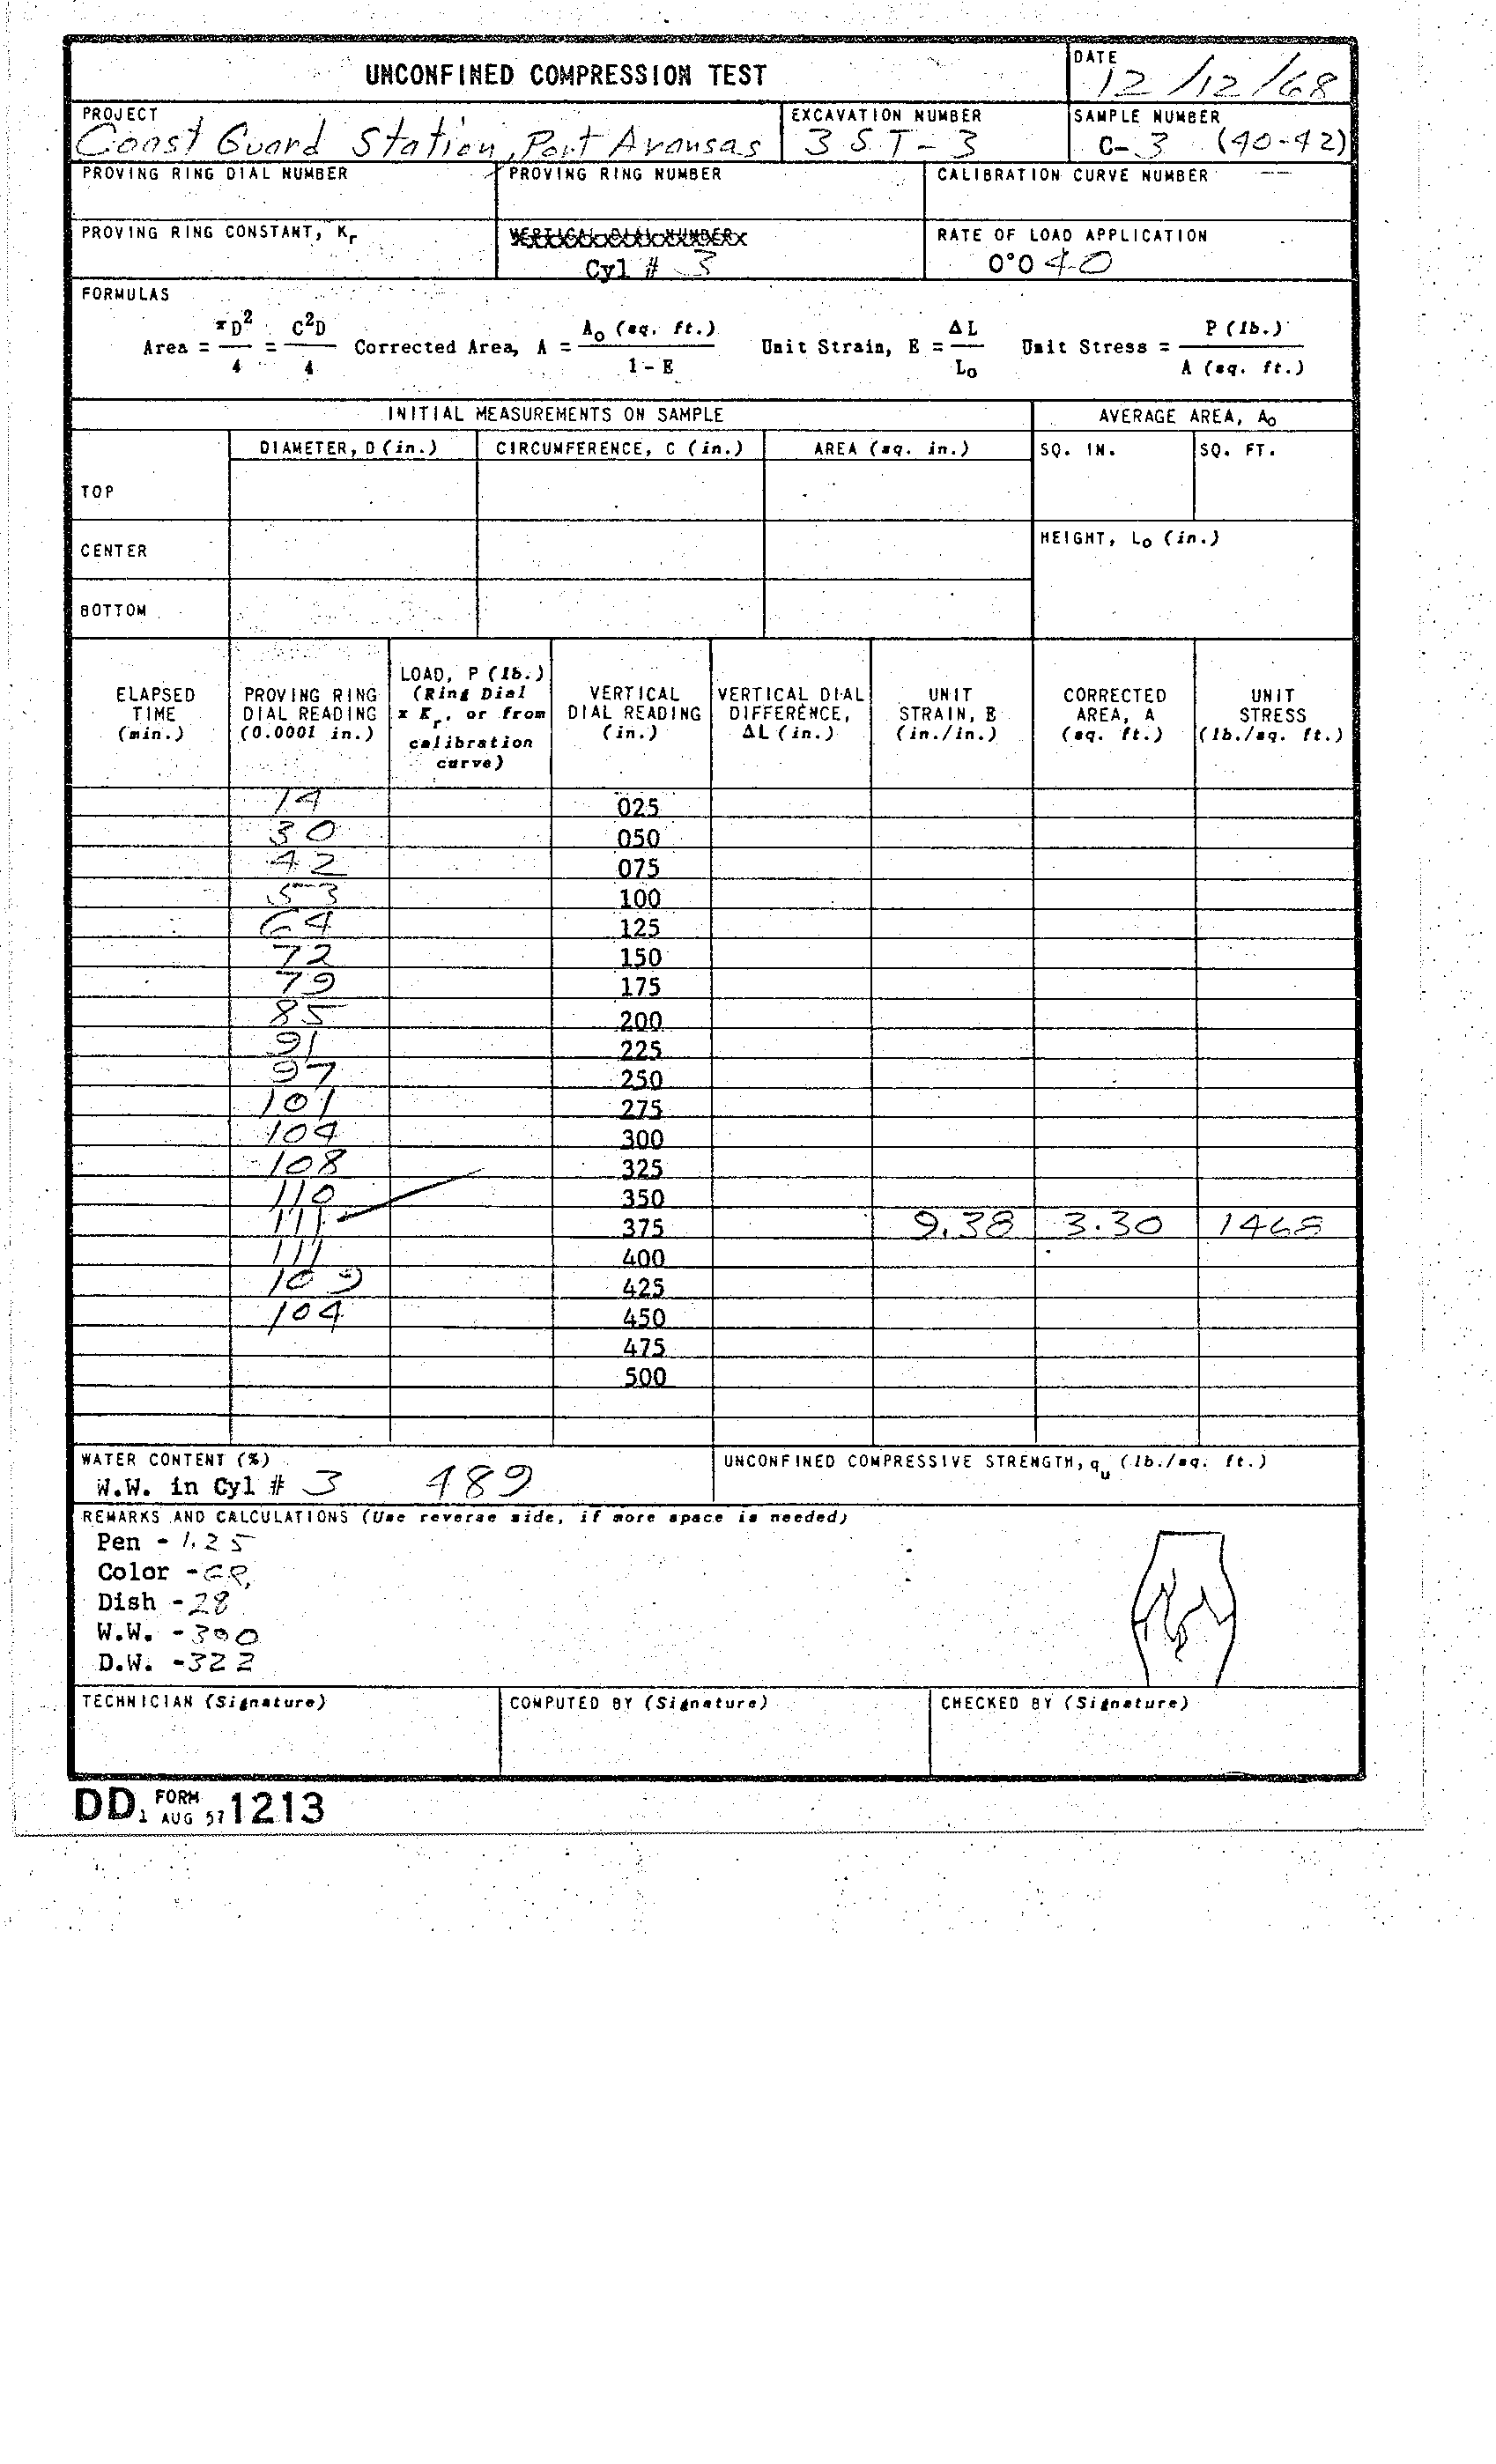 UNCONFINED COMPRESSION TEST
DATE
12/12/68
PROJECT
Coast Guard Station, Port Aransas
EXCAVATION NUMBER
3 S.T-3
SAMPLE NUMBER
C-3 (40-42)
PROVING RING DIAL NUMBER
PROVING RING NUMBER
CALIBRATION CURVE NUMBER
PROVING RING CONSTANT, Kr
VERTICAL DIAL NUMBER
Cyl # 3
RATE OF LOAD APPLICATION
0°040
FORMULAS
Area = πD²/4 = C²D/4 Corrected Area, A = A₀ (sq. ft.)/1 - E Unit Strain, E = ΔL/L₀ Unit Stress = P (lb.)/A (sq. ft.)
INITIAL MEASUREMENTS ON SAMPLE
AVERAGE AREA, A₀
DIAMETER, D (in.) CIRCUMFERENCE, C (in.) AREA (sq. in.) SQ. IN. SQ. FT.
TOP
CENTER
HEIGHT, L₀ (in.)
BOTTOM
ELAPSED TIME (min.)
PROVING RING DIAL READING (0.0001 in.)
LOAD, P (lb.) (Ring Dial x Kr, or from calibration curve)
VERTICAL DIAL READING (in.)
VERTICAL DIAL DIFFERENCE, ΔL (in.)
UNIT STRAIN, E (in./in.)
CORRECTED AREA, A (sq. ft.)
UNIT STRESS (lb./sq. ft.)
14 025
30 050
42 075
53 100
64 125
72 150
79 175
85 200
91 225
97 250
101 275
104 300
108 325
110 350
111 375 9.38 3.30 1468
111 400
109 425
104 450
475
500
WATER CONTENT (%)
W.W. in Cyl # 3 489
UNCONFINED COMPRESSIVE STRENGTH, qu (lb./sq. ft.)
REMARKS AND CALCULATIONS (Use reverse side, if more space is needed)
Pen - 1.25
Color - GR.
Dish - 28
W.W. - 390
D.W. - 322
TECHNICIAN (Signature)
COMPUTED BY (Signature)
CHECKED BY (Signature)
DD FORM 1 AUG 57 1213